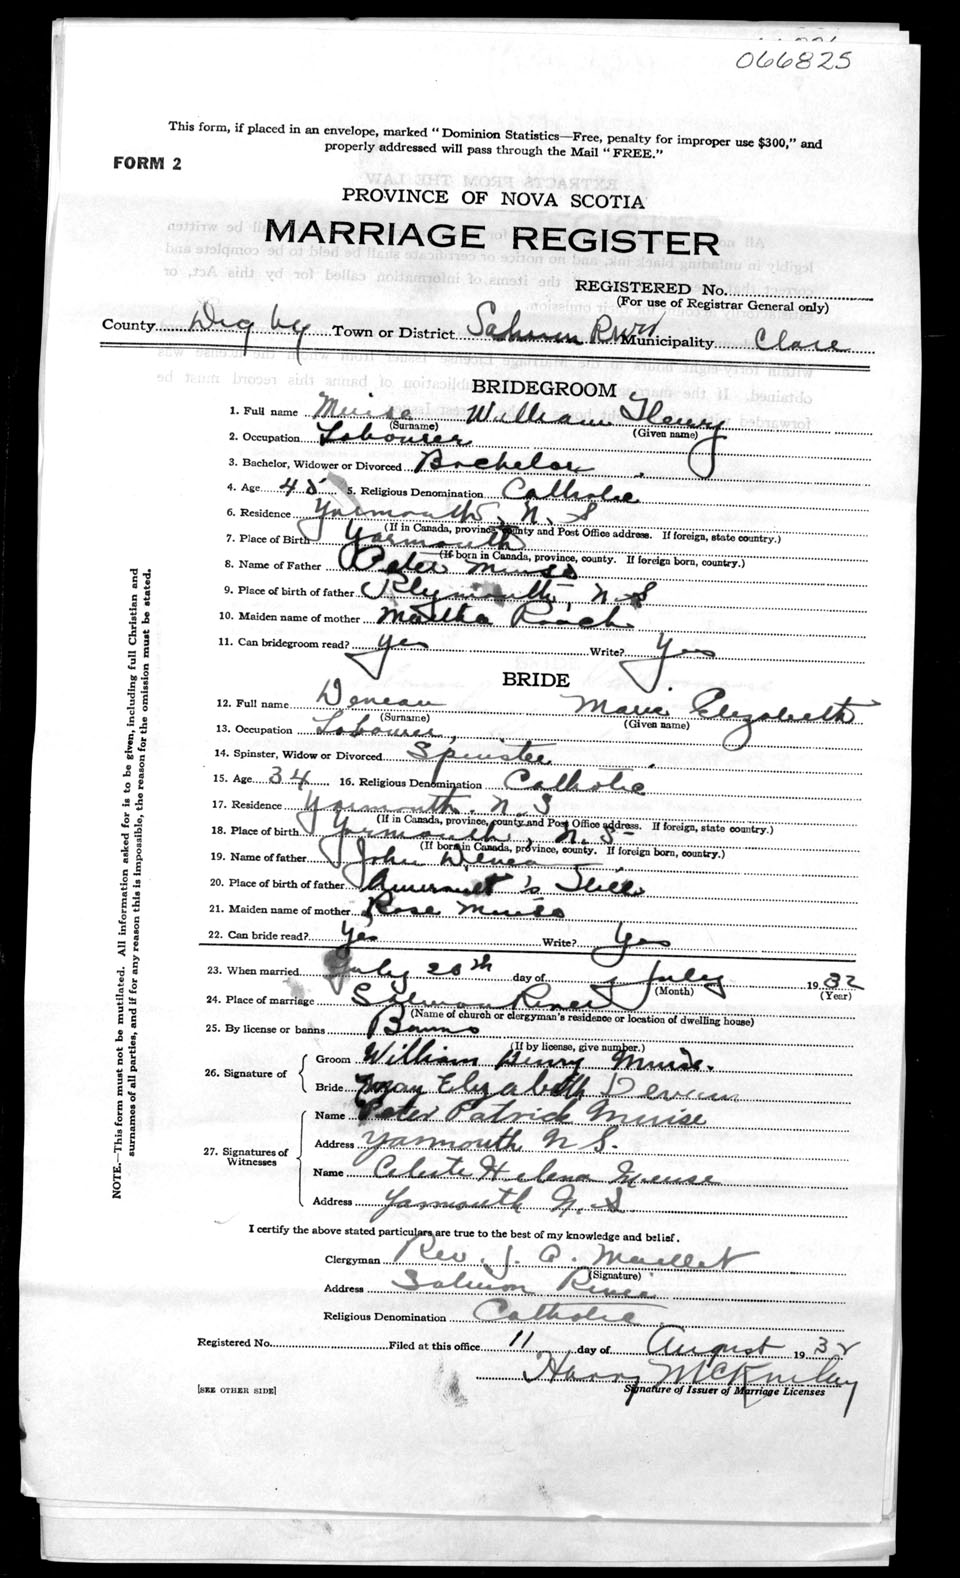 066825
This form, if placed in an envelope, marked "Dominion Statistics—Free, penalty for improper use $300," and
properly addressed will pass through the Mail "FREE."
FORM 2
PROVINCE OF NOVA SCOTIA
MARRIAGE REGISTER
REGISTERED No.
(For use of Registrar General only)
County Digby Town or District Salmon River Municipality Clare
BRIDEGROOM
1. Full name Muise William Henry
(Surname) (Given name)
2. Occupation Labourer
3. Bachelor, Widower or Divorced Bachelor
4. Age 45 5. Religious Denomination Catholic
6. Residence Yarmouth, N. S
(If in Canada, province, county and Post Office address. If foreign, state country.)
7. Place of Birth Yarmouth
(If born in Canada, province, county. If foreign born, country.)
8. Name of Father Peter Muise
9. Place of birth of father Plymouth, N. S
10. Maiden name of mother Martha Roach
11. Can bridegroom read? Yes Write? Yes
BRIDE
12. Full name Deveau Marie Elizabeth
(Surname) (Given name)
13. Occupation Labourer,
14. Spinster, Widow or Divorced Spinster
15. Age 34 16. Religious Denomination Catholic
17. Residence Yarmouth, N. S
(If in Canada, province, county and Post Office address. If foreign, state country.)
18. Place of birth Yarmouth, N. S
(If born in Canada, province, county. If foreign born, country.)
19. Name of father John
20. Place of birth of father
21. Maiden name of mother Rose Muise
22. Can bride read? Yes Write? Yes
23. When married July 20th day of July 1932
(Month) (Year)
24. Place of marriage Salmon River
(Name of church or clergyman's residence or location of dwelling house)
25. By license or banns Banns
(If by license, give number.)
26. Signature of
Groom William Henry Muise.
Bride Mary Elizabeth Deveau
27. Signatures of Witnesses
Name Peter Patrick Muise
Address Yarmouth N. S.
Name Celeste Helena Meuse
Address Yarmouth N. S.
I certify the above stated particulars are true to the best of my knowledge and belief.
Clergyman Rev. J. A. Maillet
(Signature)
Address Salmon River
Religious Denomination Catholic
Registered No. Filed at this office 11 day of August 1932
Harry McKinlay
Signature of Issuer of Marriage Licenses
[SEE OTHER SIDE]
NOTE.—This form must not be mutilated. All information asked for is to be given, including full Christian and
surnames of all parties, and if for any reason this is impossible, the reason for the omission must be stated.